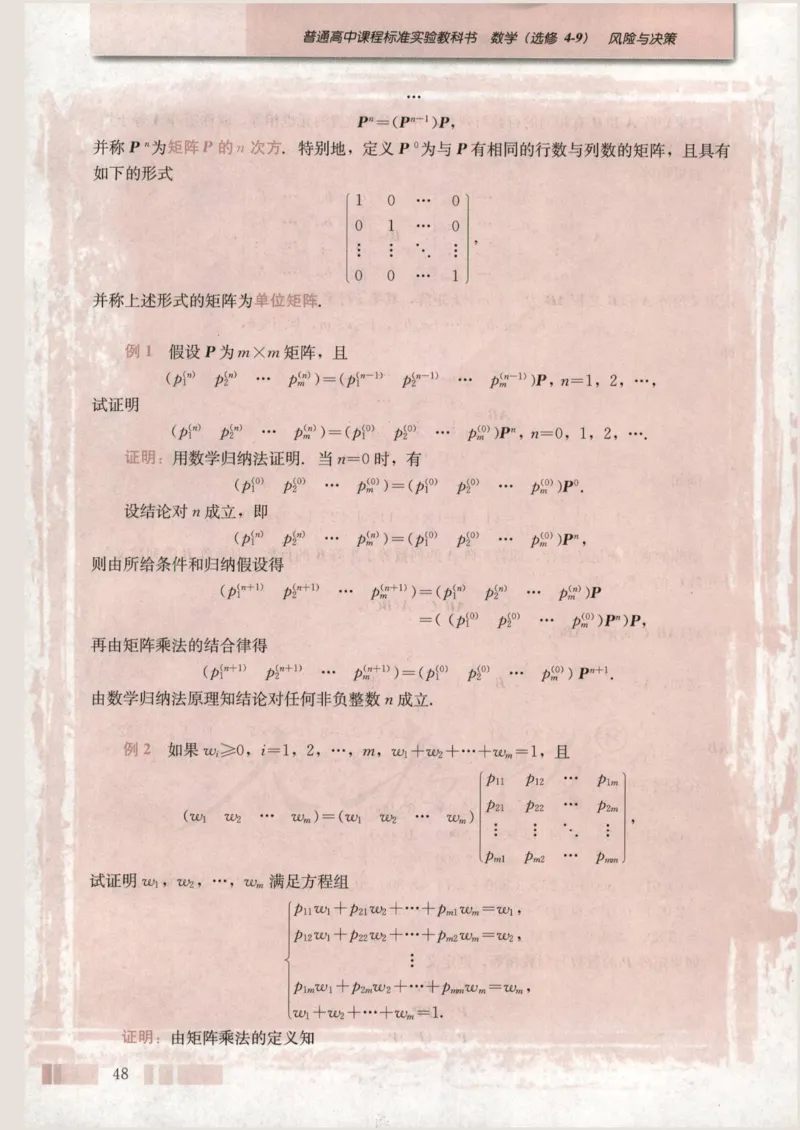 普通高中课程标准实验教科书 数学（选修 4-9） 风险与决策
…
Pⁿ=(Pⁿ⁻¹)P,
并称 Pⁿ为矩阵P 的 n 次方. 特别地，定义 P⁰为与 P 有相同的行数与列数的矩阵，且具有
如下的形式
1 0 … 0
0 1 … 0
⋮ ⋮ ⋱ ⋮ ,
0 0 … 1
并称上述形式的矩阵为单位矩阵.
例 1 假设 P 为 m×m 矩阵，且
(p₁⁽ⁿ⁾ p₂⁽ⁿ⁾ … pₘ⁽ⁿ⁾)=(p₁⁽ⁿ⁻¹⁾ p₂⁽ⁿ⁻¹⁾ … pₘ⁽ⁿ⁻¹⁾)P, n=1, 2, …,
试证明
(p₁⁽ⁿ⁾ p₂⁽ⁿ⁾ … pₘ⁽ⁿ⁾)=(p₁⁽⁰⁾ p₂⁽⁰⁾ … pₘ⁽⁰⁾)Pⁿ, n=0, 1, 2, ….
证明：用数学归纳法证明. 当 n=0 时，有
(p₁⁽⁰⁾ p₂⁽⁰⁾ … pₘ⁽⁰⁾)=(p₁⁽⁰⁾ p₂⁽⁰⁾ … pₘ⁽⁰⁾)P⁰.
设结论对 n 成立，即
(p₁⁽ⁿ⁾ p₂⁽ⁿ⁾ … pₘ⁽ⁿ⁾)=(p₁⁽⁰⁾ p₂⁽⁰⁾ … pₘ⁽⁰⁾)Pⁿ,
则由所给条件和归纳假设得
(p₁⁽ⁿ⁺¹⁾ p₂⁽ⁿ⁺¹⁾ … pₘ⁽ⁿ⁺¹⁾)=(p₁⁽ⁿ⁾ p₂⁽ⁿ⁾ … pₘ⁽ⁿ⁾)P
=( (p₁⁽⁰⁾ p₂⁽⁰⁾ … pₘ⁽⁰⁾)Pⁿ)P,
再由矩阵乘法的结合律得
(p₁⁽ⁿ⁺¹⁾ p₂⁽ⁿ⁺¹⁾ … pₘ⁽ⁿ⁺¹⁾)=(p₁⁽⁰⁾ p₂⁽⁰⁾ … pₘ⁽⁰⁾) Pⁿ⁺¹.
由数学归纳法原理知结论对任何非负整数 n 成立.
例 2 如果 wᵢ≥0, i=1, 2, …, m, w₁+w₂+…+wₘ=1, 且
(w₁ w₂ … wₘ)=(w₁ w₂ … wₘ)
p₁₁ p₁₂ … p₁ₘ
p₂₁ p₂₂ … p₂ₘ
⋮ ⋮ ⋱ ⋮ ,
pₘ₁ pₘ₂ … pₘₘ
试证明 w₁, w₂, …, wₘ 满足方程组
p₁₁w₁+p₂₁w₂+…+pₘ₁wₘ=w₁,
p₁₂w₁+p₂₂w₂+…+pₘ₂wₘ=w₂,
⋮
p₁ₘw₁+p₂ₘw₂+…+pₘₘwₘ=wₘ,
w₁+w₂+…+wₘ=1.
证明：由矩阵乘法的定义知
48